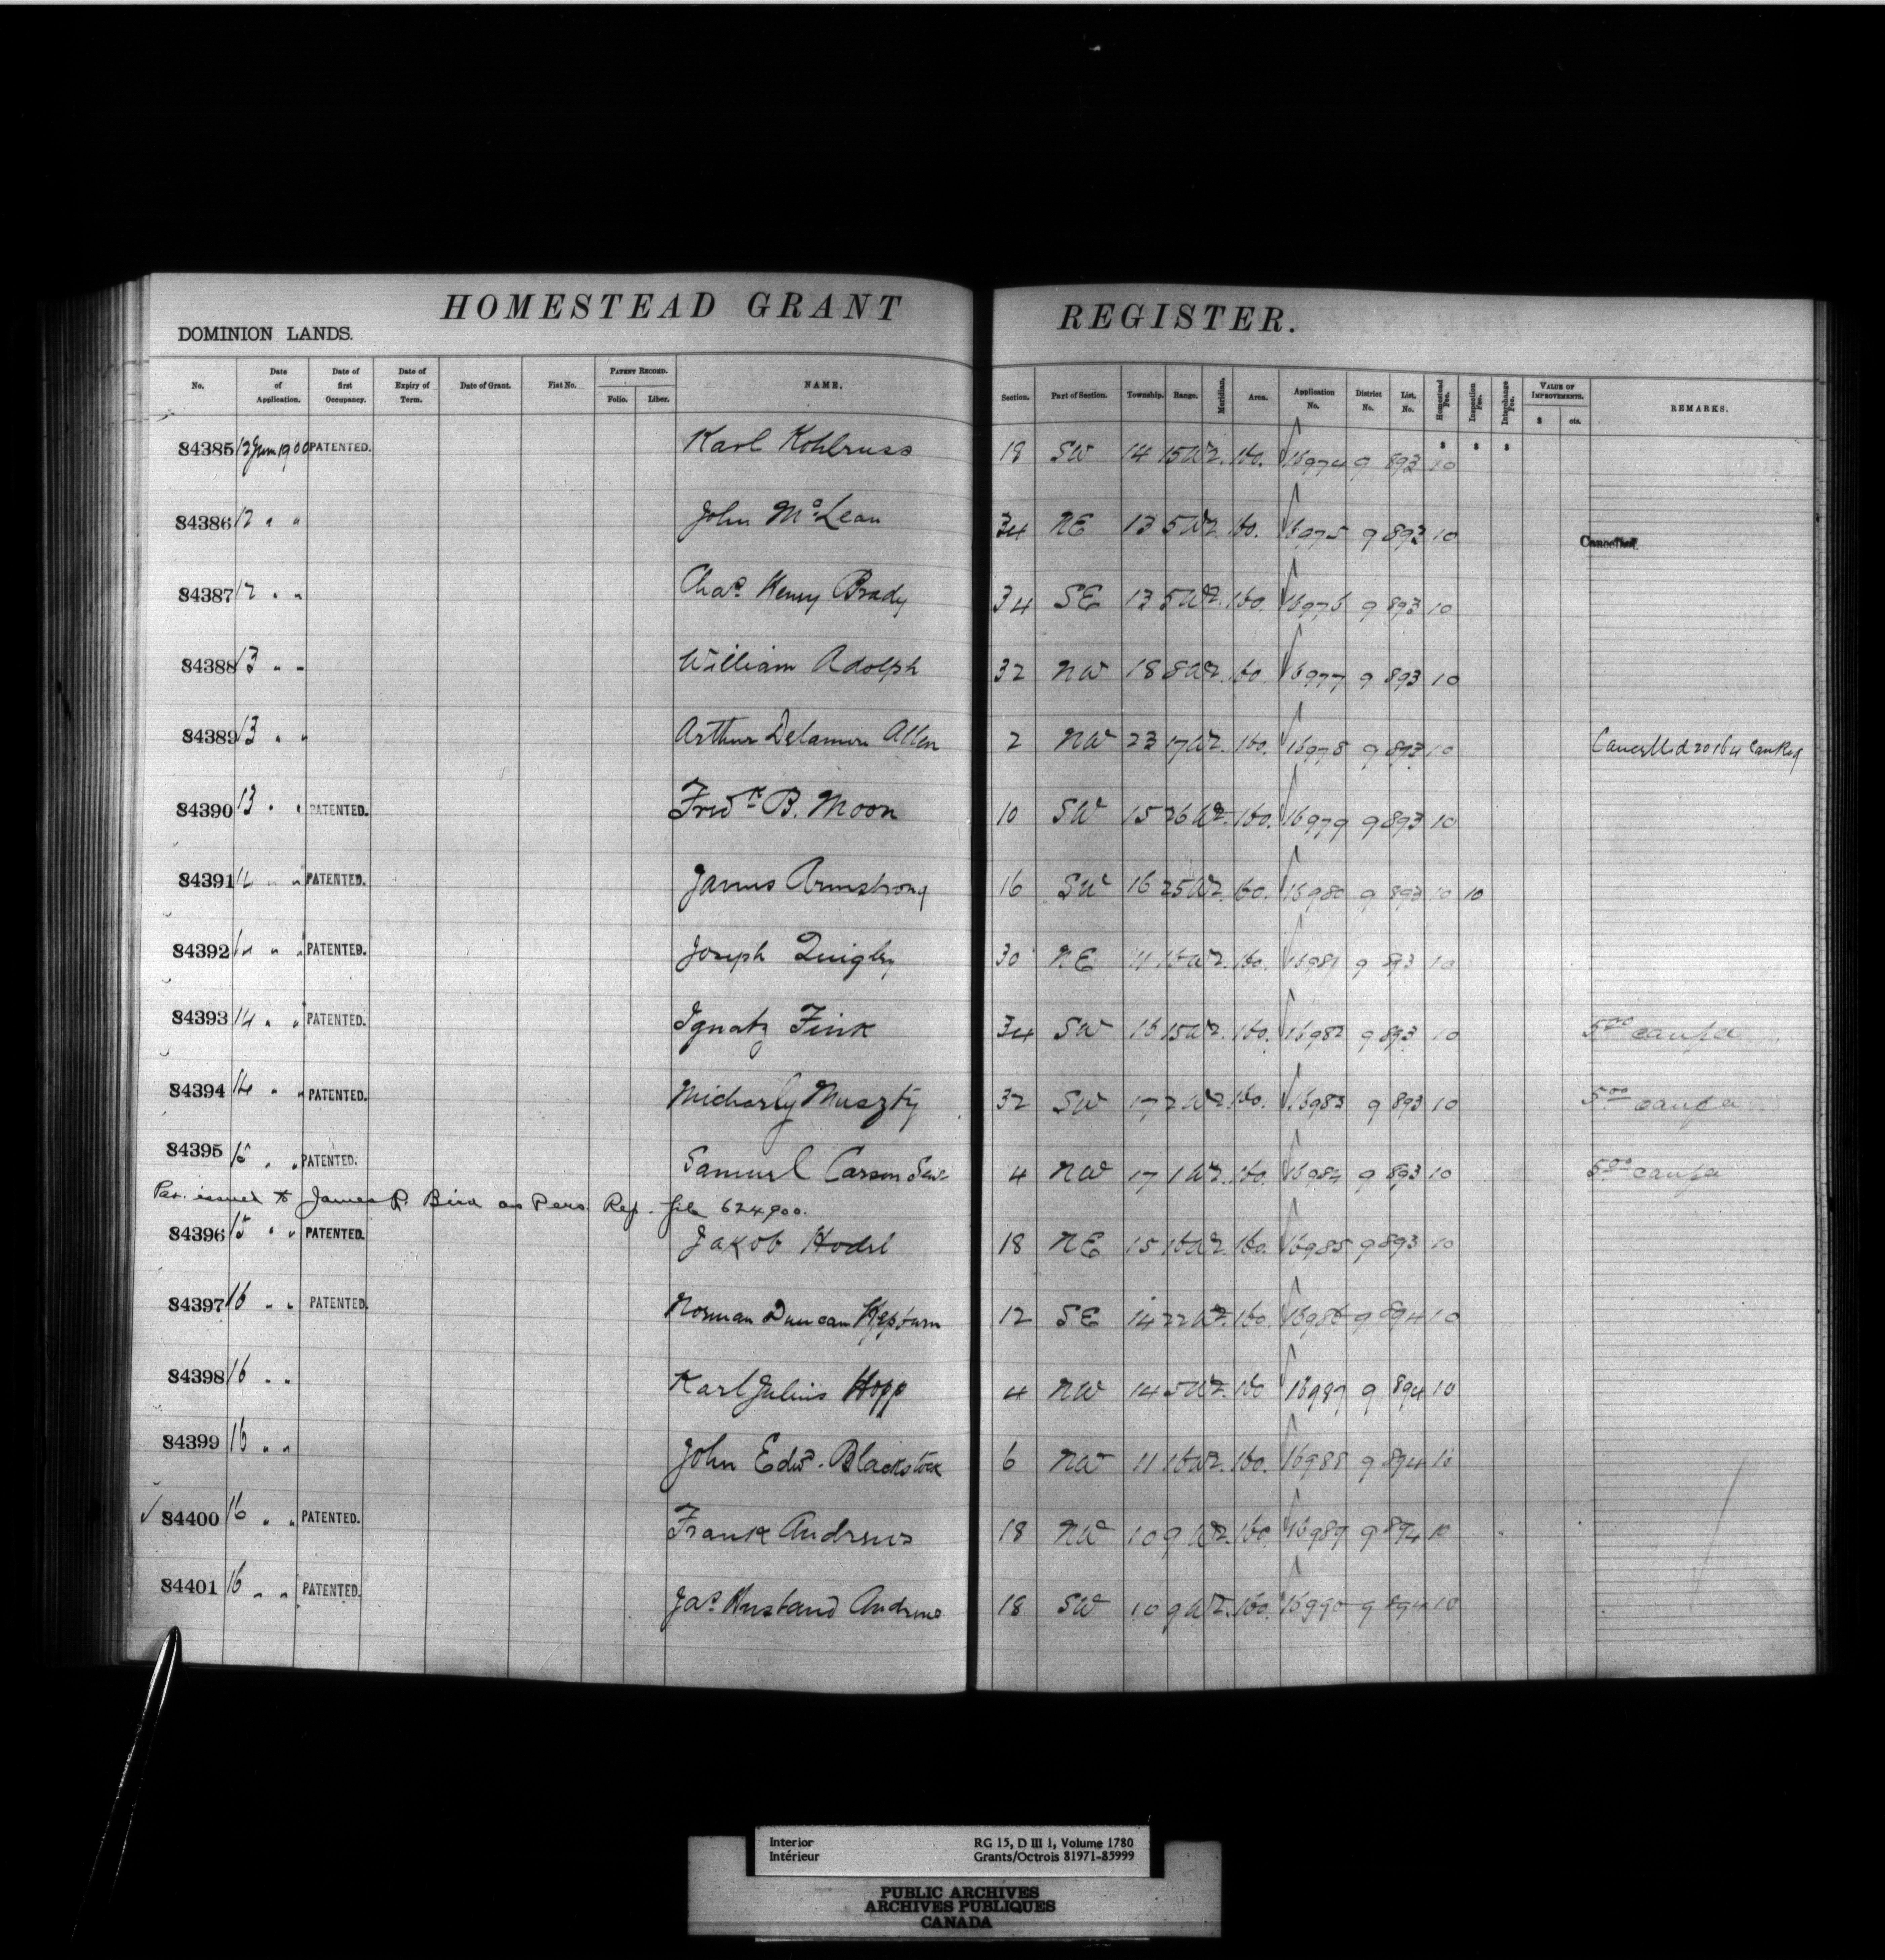 HOMESTEAD GRANT REGISTER.
DOMINION LANDS.
No. Date of Application. Date of first Occupancy. Date of Expiry of Term. Date of Grant. Fiat No. PATENT RECORD. Folio. Liber. NAME. Section. Part of Section. Township. Range. Meridian. Area. Application No. District No. List. No. Homestead Fee. Inspection Fee. Interchange Fee. VALUE OF IMPROVEMENTS. $ cts. REMARKS.
$ $ $
84385 12 June 1900 PATENTED. Karl Kohlruss 18 SW 14 15 W2. 160. 16974 9 893 10
84386 12 " " John McLean 34 NE 13 5 W2. 160. 16975 9 893 10 Cancelled.
84387 12 " " Chas. Henry Brady 34 SE 13 5 W2. 160. 16976 9 893 10
84388 13 " " William Adolph 32 NW 18 8 W2. 160. 16977 9 893 10
84389 13 " " Arthur Delamere Allen 2 NW 23 17 W2. 160. 16978 9 893 10 Cancelled 20164 Can Reg
84390 13 " " PATENTED. Fredk B. Moon 10 SW 15 26 W2. 160. 16979 9 893 10
84391 14 " " PATENTED. James Armstrong 16 SW 16 25 W2. 160. 16980 9 893 10 10
84392 14 " " PATENTED. Joseph Quigley 30 NE 11 16 W2. 160. 16981 9 893 10
84393 14 " " PATENTED. Ignatz Fink 34 SW 16 15 W2. 160. 16982 9 893 10 5.00
84394 14 " " PATENTED. Micharly Muszty 32 SW 17 2 W2 160. 16983 9 893 10 5.00
84395 15 " " PATENTED. Samuel Carson Senr. 4 NW 17 1 W2. 160. 16984 9 893 10 5.00
Pat. issued to James P. Bird as Pers. Rep. file 624900.
84396 15 " " PATENTED. Jakob Hodel 18 NE 15 16 W2 160. 16985 9 893 10
84397 16 " " PATENTED. Norman Duncan Hepburn 12 SE 14 22 W2. 160. 16986 9 894 10
84398 16 " " Karl Julius Hopp 4 NW 14 5 W2. 160 16987 9 894 10
84399 16 " " John Edwd. Blackstock 6 NW 11 16 W2. 160. 16988 9 894 10
84400 16 " " PATENTED. Frank Andrews 18 NW 10 9 W2. 160 16989 9 894 10
84401 16 " " PATENTED. Jas. Husband Andrews 18 SW 10 9 W2. 160. 16990 9 894 10
Interior RG 15, D III 1, Volume 1780
Intérieur Grants/Octrois 81971-85999
PUBLIC ARCHIVES
ARCHIVES PUBLIQUES
CANADA